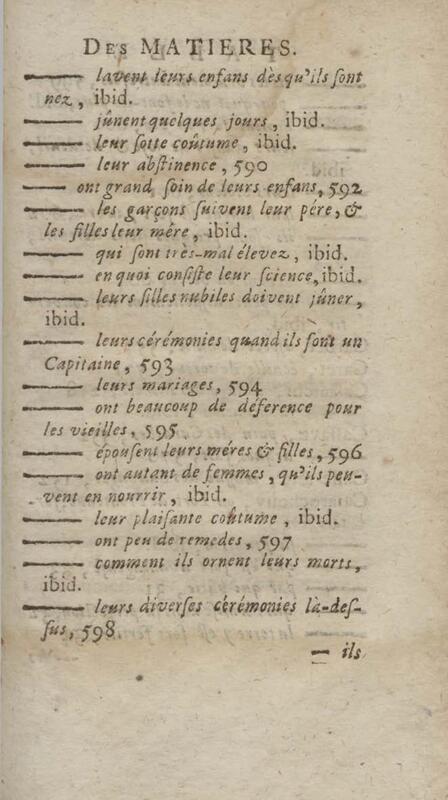 DES MATIERES.
——— lavent leurs enfans dès qu'ils ſont
nez, ibid.
——— jûnent quelques jours, ibid.
——— leur ſotte coûtume, ibid.
——— leur abſtinence, 590
——— ont grand ſoin de leurs enfans, 592
——— les garçons ſuivent leur pére, &
les filles leur mére, ibid.
——— qui ſont très-mal élevez, ibid.
——— en quoi conſiſte leur ſcience, ibid.
——— leurs filles nubiles doivent jûner,
ibid.
——— leurs cérémonies quand ils ſont un
Capitaine, 593
——— leurs mariages, 594
——— ont beaucoup de déference pour
les vieilles, 595
——— épouſent leurs méres & filles, 596
——— ont autant de femmes, qu'ils peu-
vent en nourrir, ibid.
——— leur plaiſante coûtume, ibid.
——— ont peu de remedes, 597
——— comment ils ornent leurs morts,
ibid.
——— leurs diverſes cérémonies là-deſ-
ſus, 598
— ils